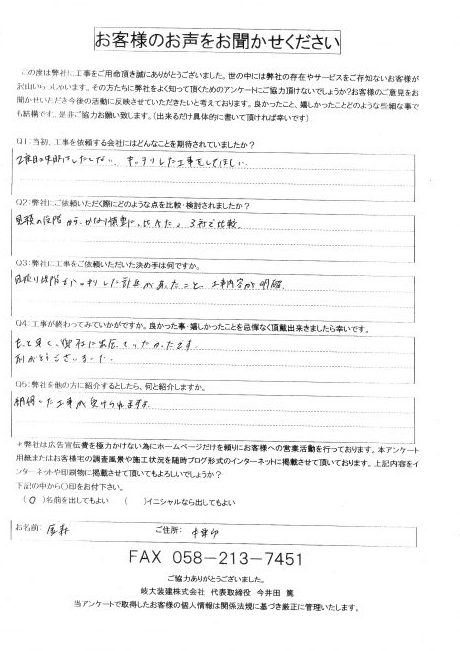 お客様のお声をお聞かせください
この度は弊社に工事をご用命頂き誠にありがとうございました。世の中には弊社の存在やサービスをご存知ないお客様が
沢山いらっしゃいます。その方たちに弊社をよく知って頂くためのアンケートにご協力頂けないでしょうか?お客様のご意見をお
聞かせいただき今後の活動に反映させていただきたいと考えております。良かったこと、嬉しかったことどのような些細な事で
も結構です、是非ご協力お願い致します。(出来るだけ具体的に書いて頂ければ幸いです)
Q1:当初、工事を依頼する会社にはどんなことを期待されていましたか?
キッチリした工事をしてほしい.
Q2:弊社にご依頼いただく際にどのような点を比較・検討されましたか?
見積の段階から、かなり慎重に、比べた。3社で比較.
Q3:弊社に工事をご依頼いただいた決め手は何ですか。
した計画があったこと、工事内容が明確.
Q4:工事が終わってみていかがですか。良かった事・嬉しかったことを忌憚なく頂戴出来きましたら幸いです。
もっと早く、御社に出会っていたかったです.
ありがとうございました.
Q5:弊社を他の方に紹介するとしたら、何と紹介しますか。
納得した工事が受けられますよ.
*弊社は広告宣伝費を極力かけない為にホームページだけを頼りにお客様への営業活動を行っております。本アンケート
用紙またはお客様宅の調査風景や施工状況を随時ブログ形式のインターネットに掲載させて頂いております。上記内容をイ
ンターネットや印刷物に掲載させて頂いてもよろしいでしょうか?
下記の中から〇印をお付下さい。
(〇)名前を出してもよい ( )イニシャルなら出してもよい
お名前: ご住所:
FAX 058-213-7451
ご協力ありがとうございました。
岐大装建株式会社 代表取締役 今井田 篤
当アンケートで取得したお客様の個人情報は関係法規に基づき厳正に管理いたします。